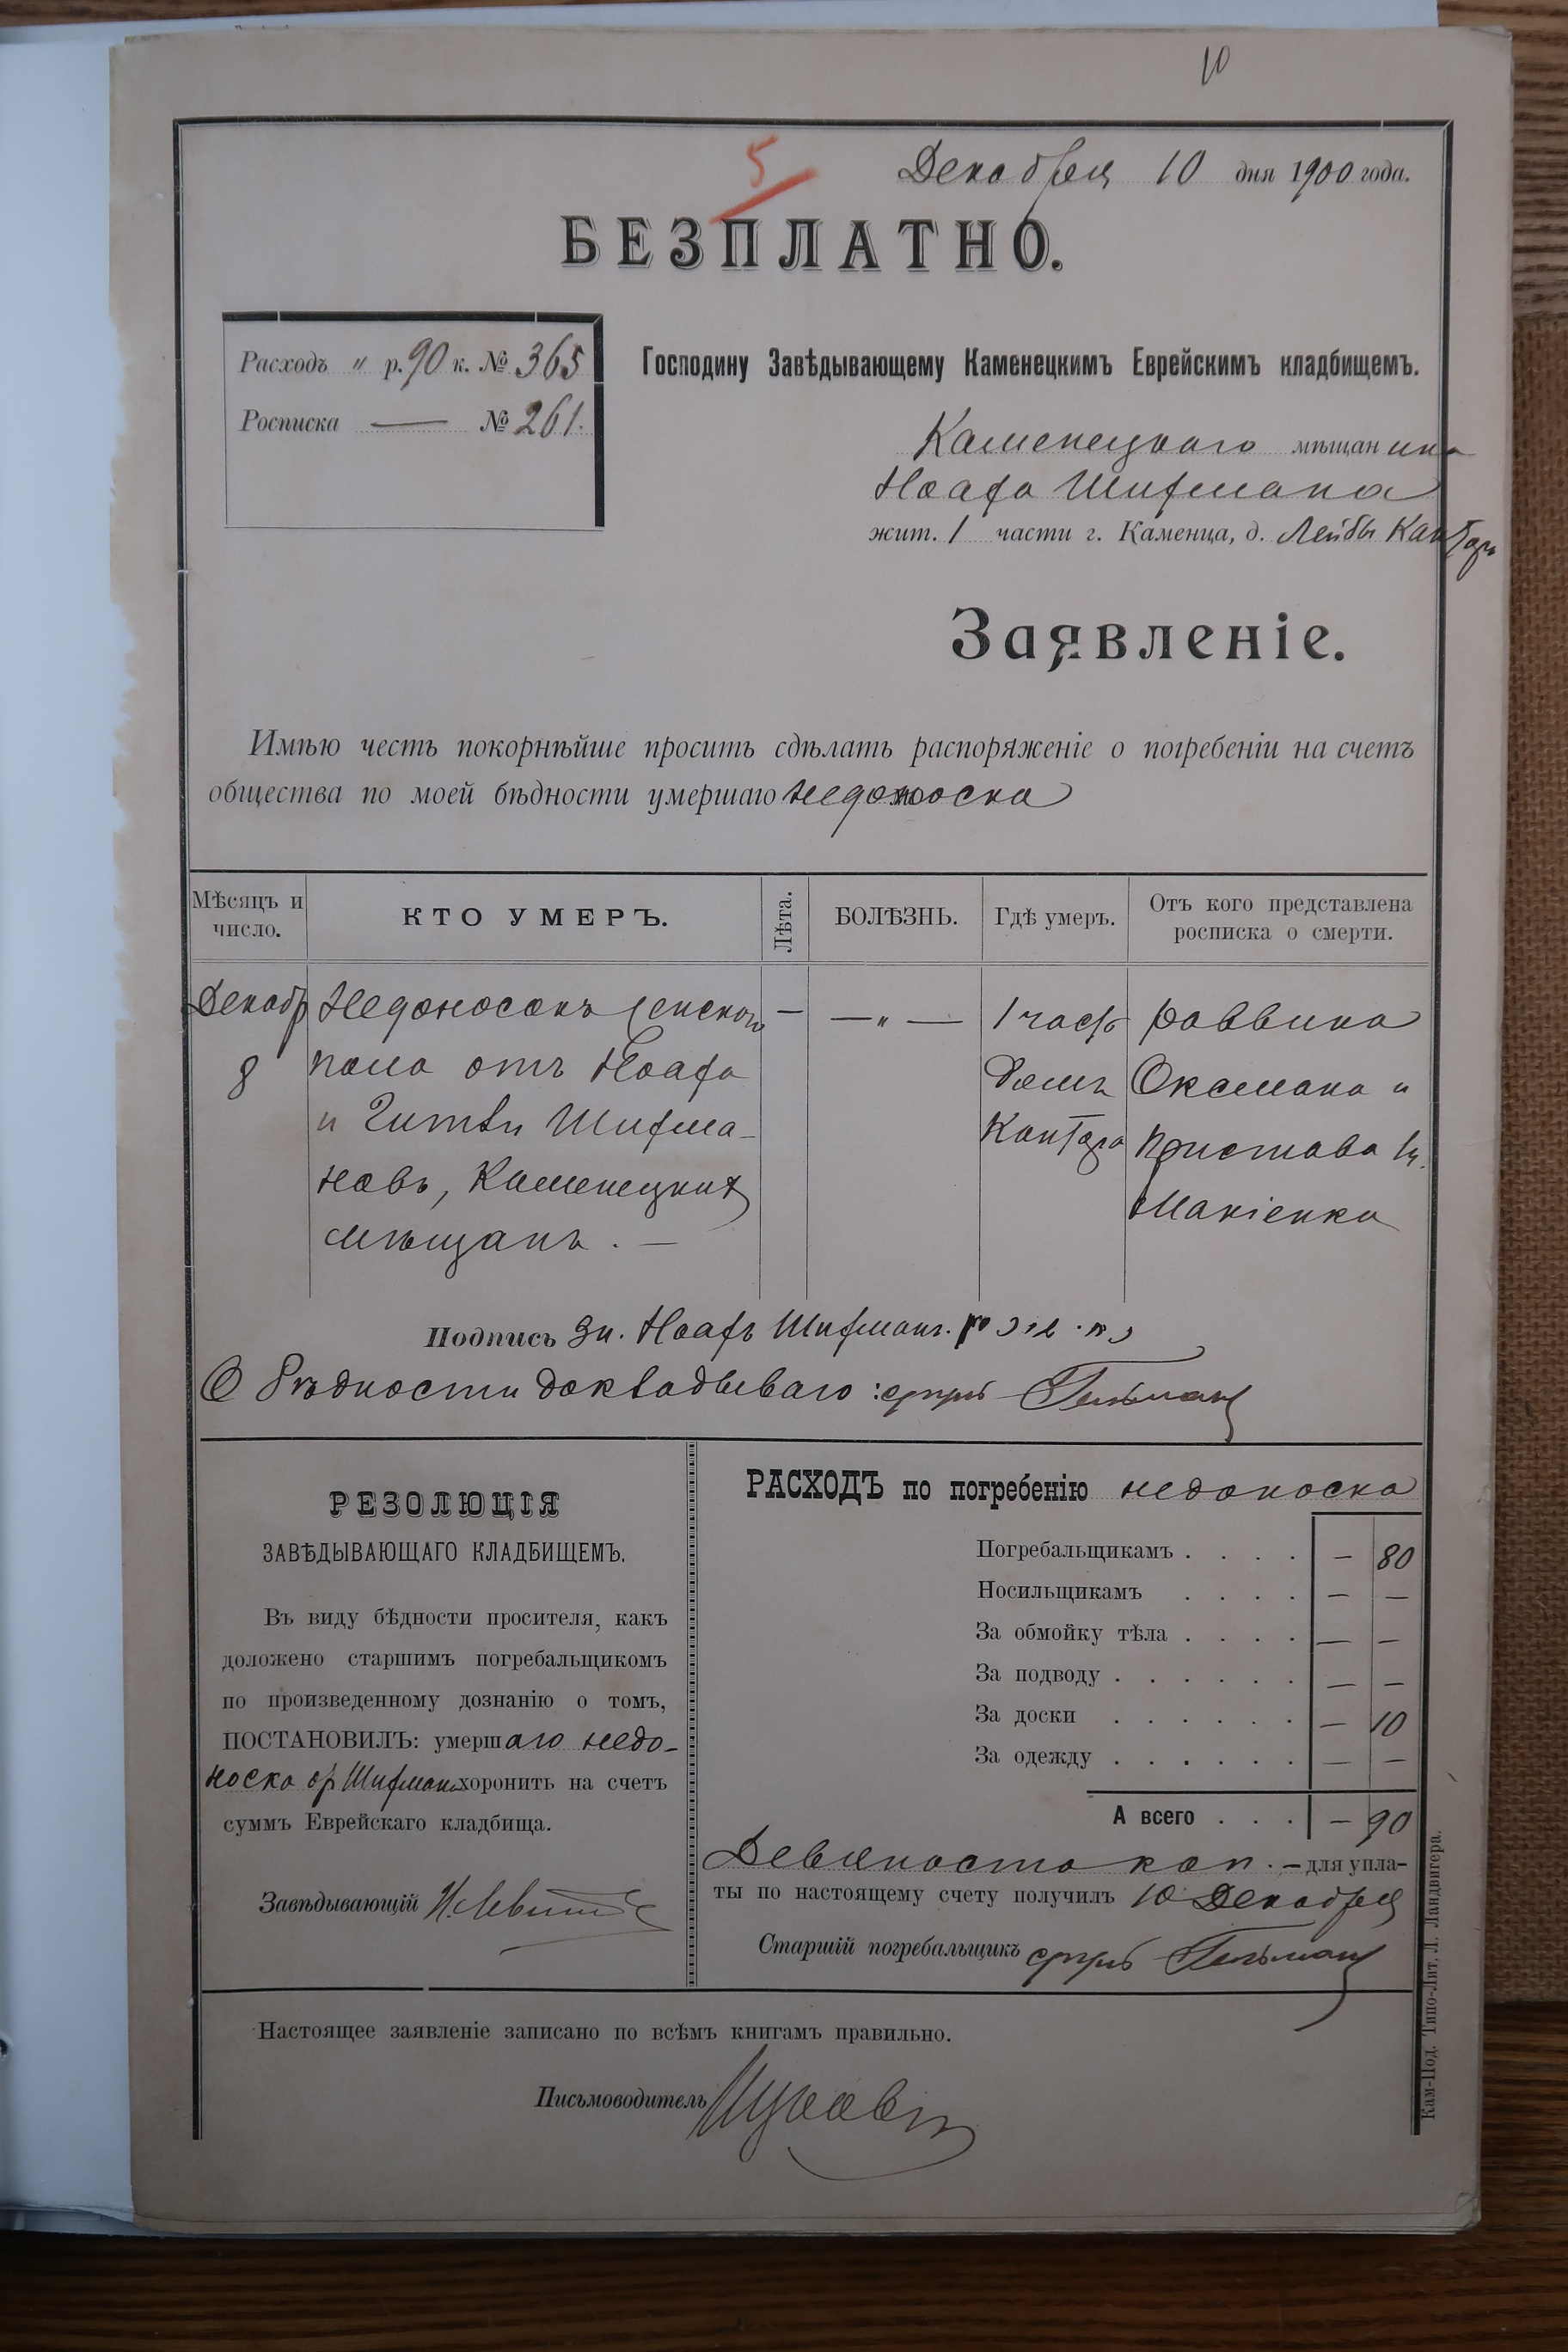 10
5
Декабря 10 дня 1900 года.
БЕЗПЛАТНО.
Расходъ " р. 90 к. № 365
Росписка — № 261.
Господину Завѣдывающему Каменецкимъ Еврейскимъ кладбищемъ.
Каменецкаго мѣщанина
Ноаха Шифмана
жит. 1 части г. Каменца, д. Лейбы Кантора
Заявленіе.
Имѣю честь покорнѣйше просить сдѣлать распоряженіе о погребеніи на счетъ
общества по моей бѣдности умершаго недоноска
Мѣсяцъ и число.
КТО УМЕРЪ.
Лѣта.
БОЛѢЗНЬ.
Гдѣ умеръ.
Отъ кого представлена росписка о смерти.
Декабр 8
Недоносокъ женскаго — — " —
пола отъ Ноаха
и Гитли Шифма-
новъ, Каменецкихъ
мѣщанъ. —
1 часть
домъ
Кантора
раввина
Оксмана и
пристава
Подпись Ноахъ Шифманъ.
О бѣдности докладываю: Гельман
РЕЗОЛЮЦІЯ
ЗАВѢДЫВАЮЩАГО КЛАДБИЩЕМЪ.
Въ виду бѣдности просителя, какъ
доложено старшимъ погребальщикомъ
по произведенному дознанію о томъ,
ПОСТАНОВИЛЪ: умершаго недо-
носка Шифмана хоронить на счетъ
суммъ Еврейскаго кладбища.
Завѣдывающій
РАСХОДЪ по погребенію недоноска
Погребальщикамъ . . . . — 80
Носильщикамъ . . . . — —
За обмойку тѣла . . . . — —
За подводу . . . . . . — —
За доски . . . . . . — 10
За одежду . . . . . . — —
А всего . . . — 90
Девяносто коп. — для упла-
ты по настоящему счету получилъ 10 Декабря
Старшій погребальщикъ Гельман
Настоящее заявленіе записано по всѣмъ книгамъ правильно.
Письмоводитель
Кам-Под. Типо-Лит. Л. Ландвигера.